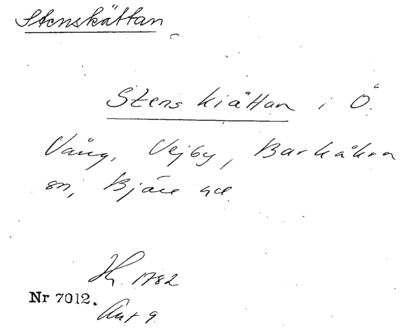 Stenskättan
Stens kiättan i Ö.
Vång, Vejby, Barkåkra
sn, Bjäre hd.
H. 1782
Nr 7012.
Akt 9